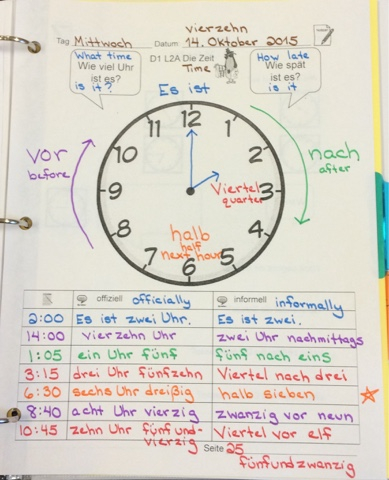 vierzehn
Tag Mittwoch Datum: 14. Oktober 2015
What time
Wie viel Uhr
ist es?
is it?
D1 L2A Die Zeit
Time
How late
Wie spät
ist es?
is it
Es ist
12
11 1
10 2
9 3
8 4
7 5
6
vor
before
nach
after
Viertel
quarter
halb
half
next hour
offiziell officially informell informally
2:00 Es ist zwei Uhr. Es ist zwei.
14:00 vierzehn Uhr zwei Uhr nachmittags
1:05 ein Uhr fünf fünf nach eins
3:15 drei Uhr fünfzehn Viertel nach drei
6:30 sechs Uhr dreißig halb sieben
8:40 acht Uhr vierzig zwanzig vor neun
10:45 zehn Uhr fünfund-
vierzig Viertel vor elf
Seite 25
fünfundzwanzig